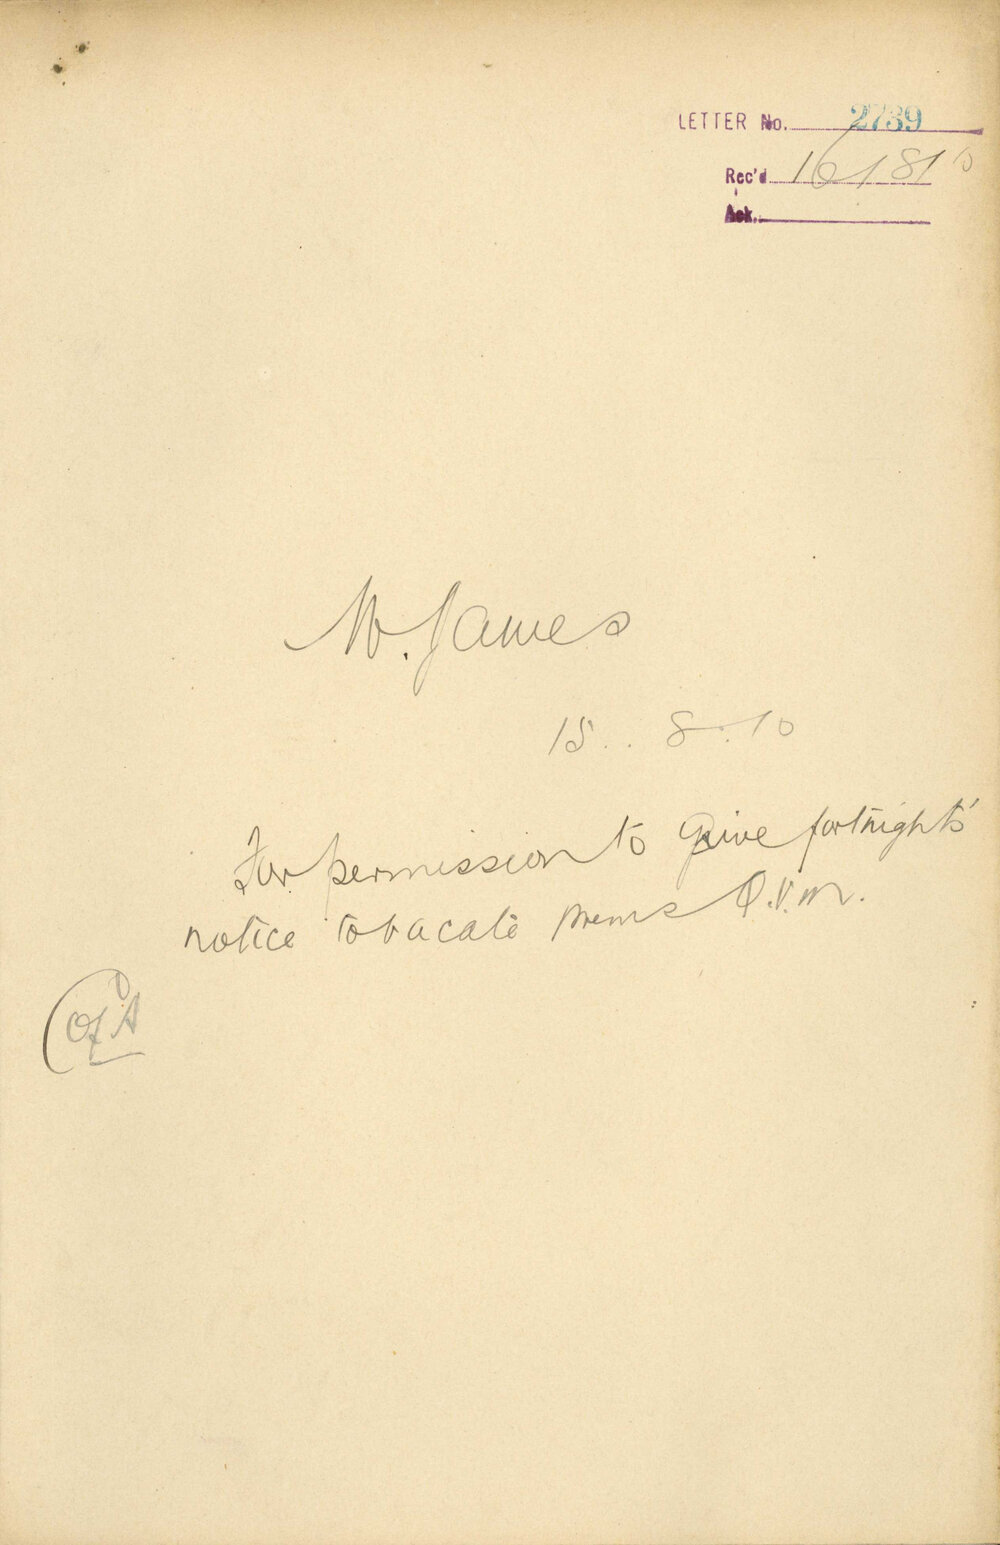 LETTER No. 2739
Rec'd 16/8/10
Ack.
W. James
15..8.10
For permission to give fortnights'
notice to vacate prems Q.V.M.